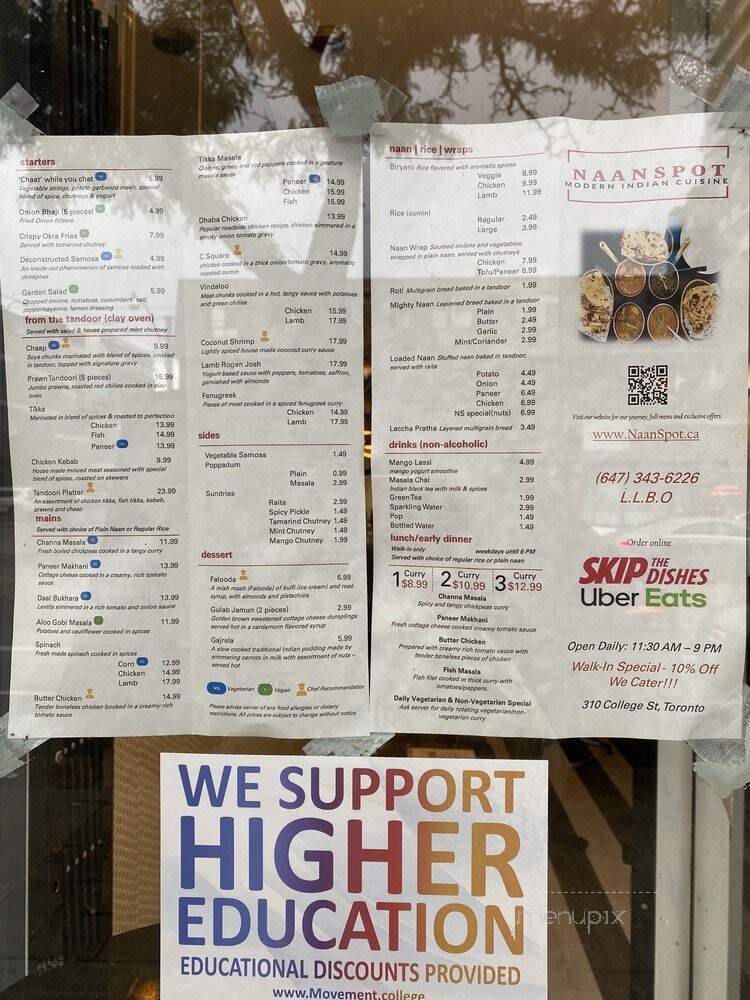 starters
'Chaat' while you chat VG 5.99
Vegetable strings, potato garbanzo mash, special
blend of spice, chutneys & yogurt
Onion Bhaji (5 pieces) 4.99
Fried Onion fritters
Crispy Okra Fries 7.99
Served with tamarind chutney
Deconstructed Samosa VG 4.99
An inside out phenomenon of samosa loaded with
chickpeas
Garden Salad 5.99
Chopped onions, tomatoes, cucumbers, salt,
pepper/cayenne, lemon dressing
from the tandoor (clay oven)
Served with salad & house prepared mint chutney
Chaap VG 9.99
Soya chunks marinated with blend of spices, cooked
in tandoor, topped with signature gravy
Prawn Tandoori (5 pieces) 15.99
Jumbo prawns, roasted red chilies cooked in clay
oven
Tikka
Marinated in blend of spices & roasted to perfection
Chicken 13.99
Fish 14.99
Paneer VG 13.99
Chicken Kebab 9.99
House made minced meat seasoned with special
blend of spices, roasted on skewers
Tandoori Platter 23.99
An assortment of chicken tikka, fish tikka, kebab,
prawns and chaap
mains
Served with choice of Plain Naan or Regular Rice
Channa Masala VG 11.99
Fresh boiled chickpeas cooked in a tangy curry
Paneer Makhani VG 13.99
Cottage cheese cooked in a creamy, rich tomato
sauce
Daal Bukhara VG 13.99
Lentils simmered in a rich tomato and onion sauce
Aloo Gobi Masala 11.99
Potatoes and cauliflower cooked in spices
Spinach
Fresh made spinach cooked in spices
Corn VG 12.99
Chicken 14.99
Lamb 17.99
Butter Chicken 14.99
Tender boneless chicken cooked in a creamy rich
tomato sauce
Tikka Masala
Onions, green and red peppers cooked in signature
masala sauce
Paneer VG 14.99
Chicken 15.99
Fish 15.99
Dhaba Chicken 13.99
Popular roadside chicken recipe, chicken simmered in a
smoky onion tomato gravy
C Square 14.99
chicken cooked in a thick onion/tomato gravy, aromatic
roasted cumin
Vindaloo
Meat chunks cooked in a hot, tangy sauce with potatoes
and green chilies
Chicken 15.99
Lamb 17.99
Coconut Shrimp 17.99
Lightly spiced house made coconut curry sauce
Lamb Rogan Josh 17.99
Yogurt-based sauce with peppers, tomatoes, saffron,
garnished with almonds
Fenugreek
Pieces of meat cooked in a spiced fenugreek curry
Chicken 14.99
Lamb 17.99
sides
Vegetable Samosa 1.49
Poppadum
Plain 0.99
Masala 2.99
Sundries
Raita 2.99
Spicy Pickle 1.49
Tamarind Chutney 1.49
Mint Chutney 1.49
Mango Chutney 1.99
dessert
Falooda 6.99
A mish mash (Falooda) of kulfi (ice cream) and rose
syrup, with almonds and pistachios
Gulab Jamun (2 pieces) 2.99
Golden brown sweetened cottage cheese dumplings
served hot in a cardamom flavored syrup
Gajrela 5.99
A slow cooked traditional Indian pudding made by
simmering carrots in milk with assortment of nuts –
served hot
VG Vegetarian V Vegan Chef Recommendation
Please advise server of any food allergies or dietary
restrictions. All prices are subject to change without notice.
naan | rice | wraps
Biryani Rice flavored with aromatic spices
Veggie 8.99
Chicken 9.99
Lamb 11.99
Rice (cumin)
Regular 2.49
Large 3.99
Naan Wrap Sauteed onions and vegetables,
wrapped in plain naan, served with chutneys
Chicken 7.99
Tofu/Paneer 6.99
Roti Multigrain bread baked in a tandoor 1.99
Mighty Naan Leavened bread baked in a tandoor
Plain 1.99
Butter 2.49
Garlic 2.99
Mint/Coriander 2.99
Loaded Naan Stuffed naan baked in tandoor,
served with raita
Potato 4.49
Onion 4.49
Paneer 6.49
Chicken 6.99
NS special(nuts) 6.99
Laccha Pratha Layered multigrain bread 3.49
drinks (non-alcoholic)
Mango Lassi 4.99
mango yogurt smoothie
Masala Chai 2.99
Indian black tea with milk & spices
Green Tea 1.99
Sparkling Water 2.99
Pop 1.49
Bottled Water 1.49
lunch/early dinner
Walk-in only weekdays until 6 PM
Served with choice of regular rice or plain naan
1 Curry $8.99 2 Curry $10.99 3 Curry $12.99
Channa Masala
Spicy and tangy chickpeas curry
Paneer Makhani
Fresh cottage cheese cooked creamy tomato sauce
Butter Chicken
Prepared with creamy rich tomato sauce with
tender boneless pieces of chicken
Fish Masala
Fish filet cooked in thick curry with
onatoes/peppers.
Daily Vegetarian & Non-Vegetarian Special
Ask server for daily rotating vegetarian/non-
vegetarian curry
NAANSPOT
MODERN INDIAN CUISINE
Visit our website for our journey, full menu and exclusive offers.
www.NaanSpot.ca
(647) 343-6226
L.L.B.O
Order online
SKIP THE DISHES
Uber Eats
Open Daily: 11:30 AM – 9 PM
Walk-In Special - 10% Off
We Cater!!!
310 College St, Toronto
WE SUPPORT
HIGHER
EDUCATION
EDUCATIONAL DISCOUNTS PROVIDED
www.Movement.college
menupix